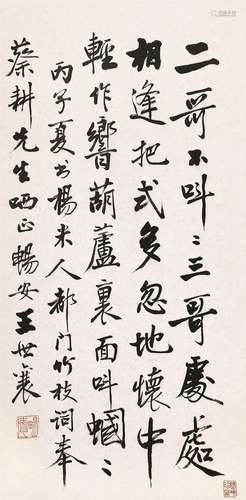 二哥不叫〻三哥處處
相逢把式多忽地懷中
輕作響葫蘆裏面叫蟈〻
丙子夏書楊米人都门竹枝詞奉
蔡耕先生哂正暢安王世襄